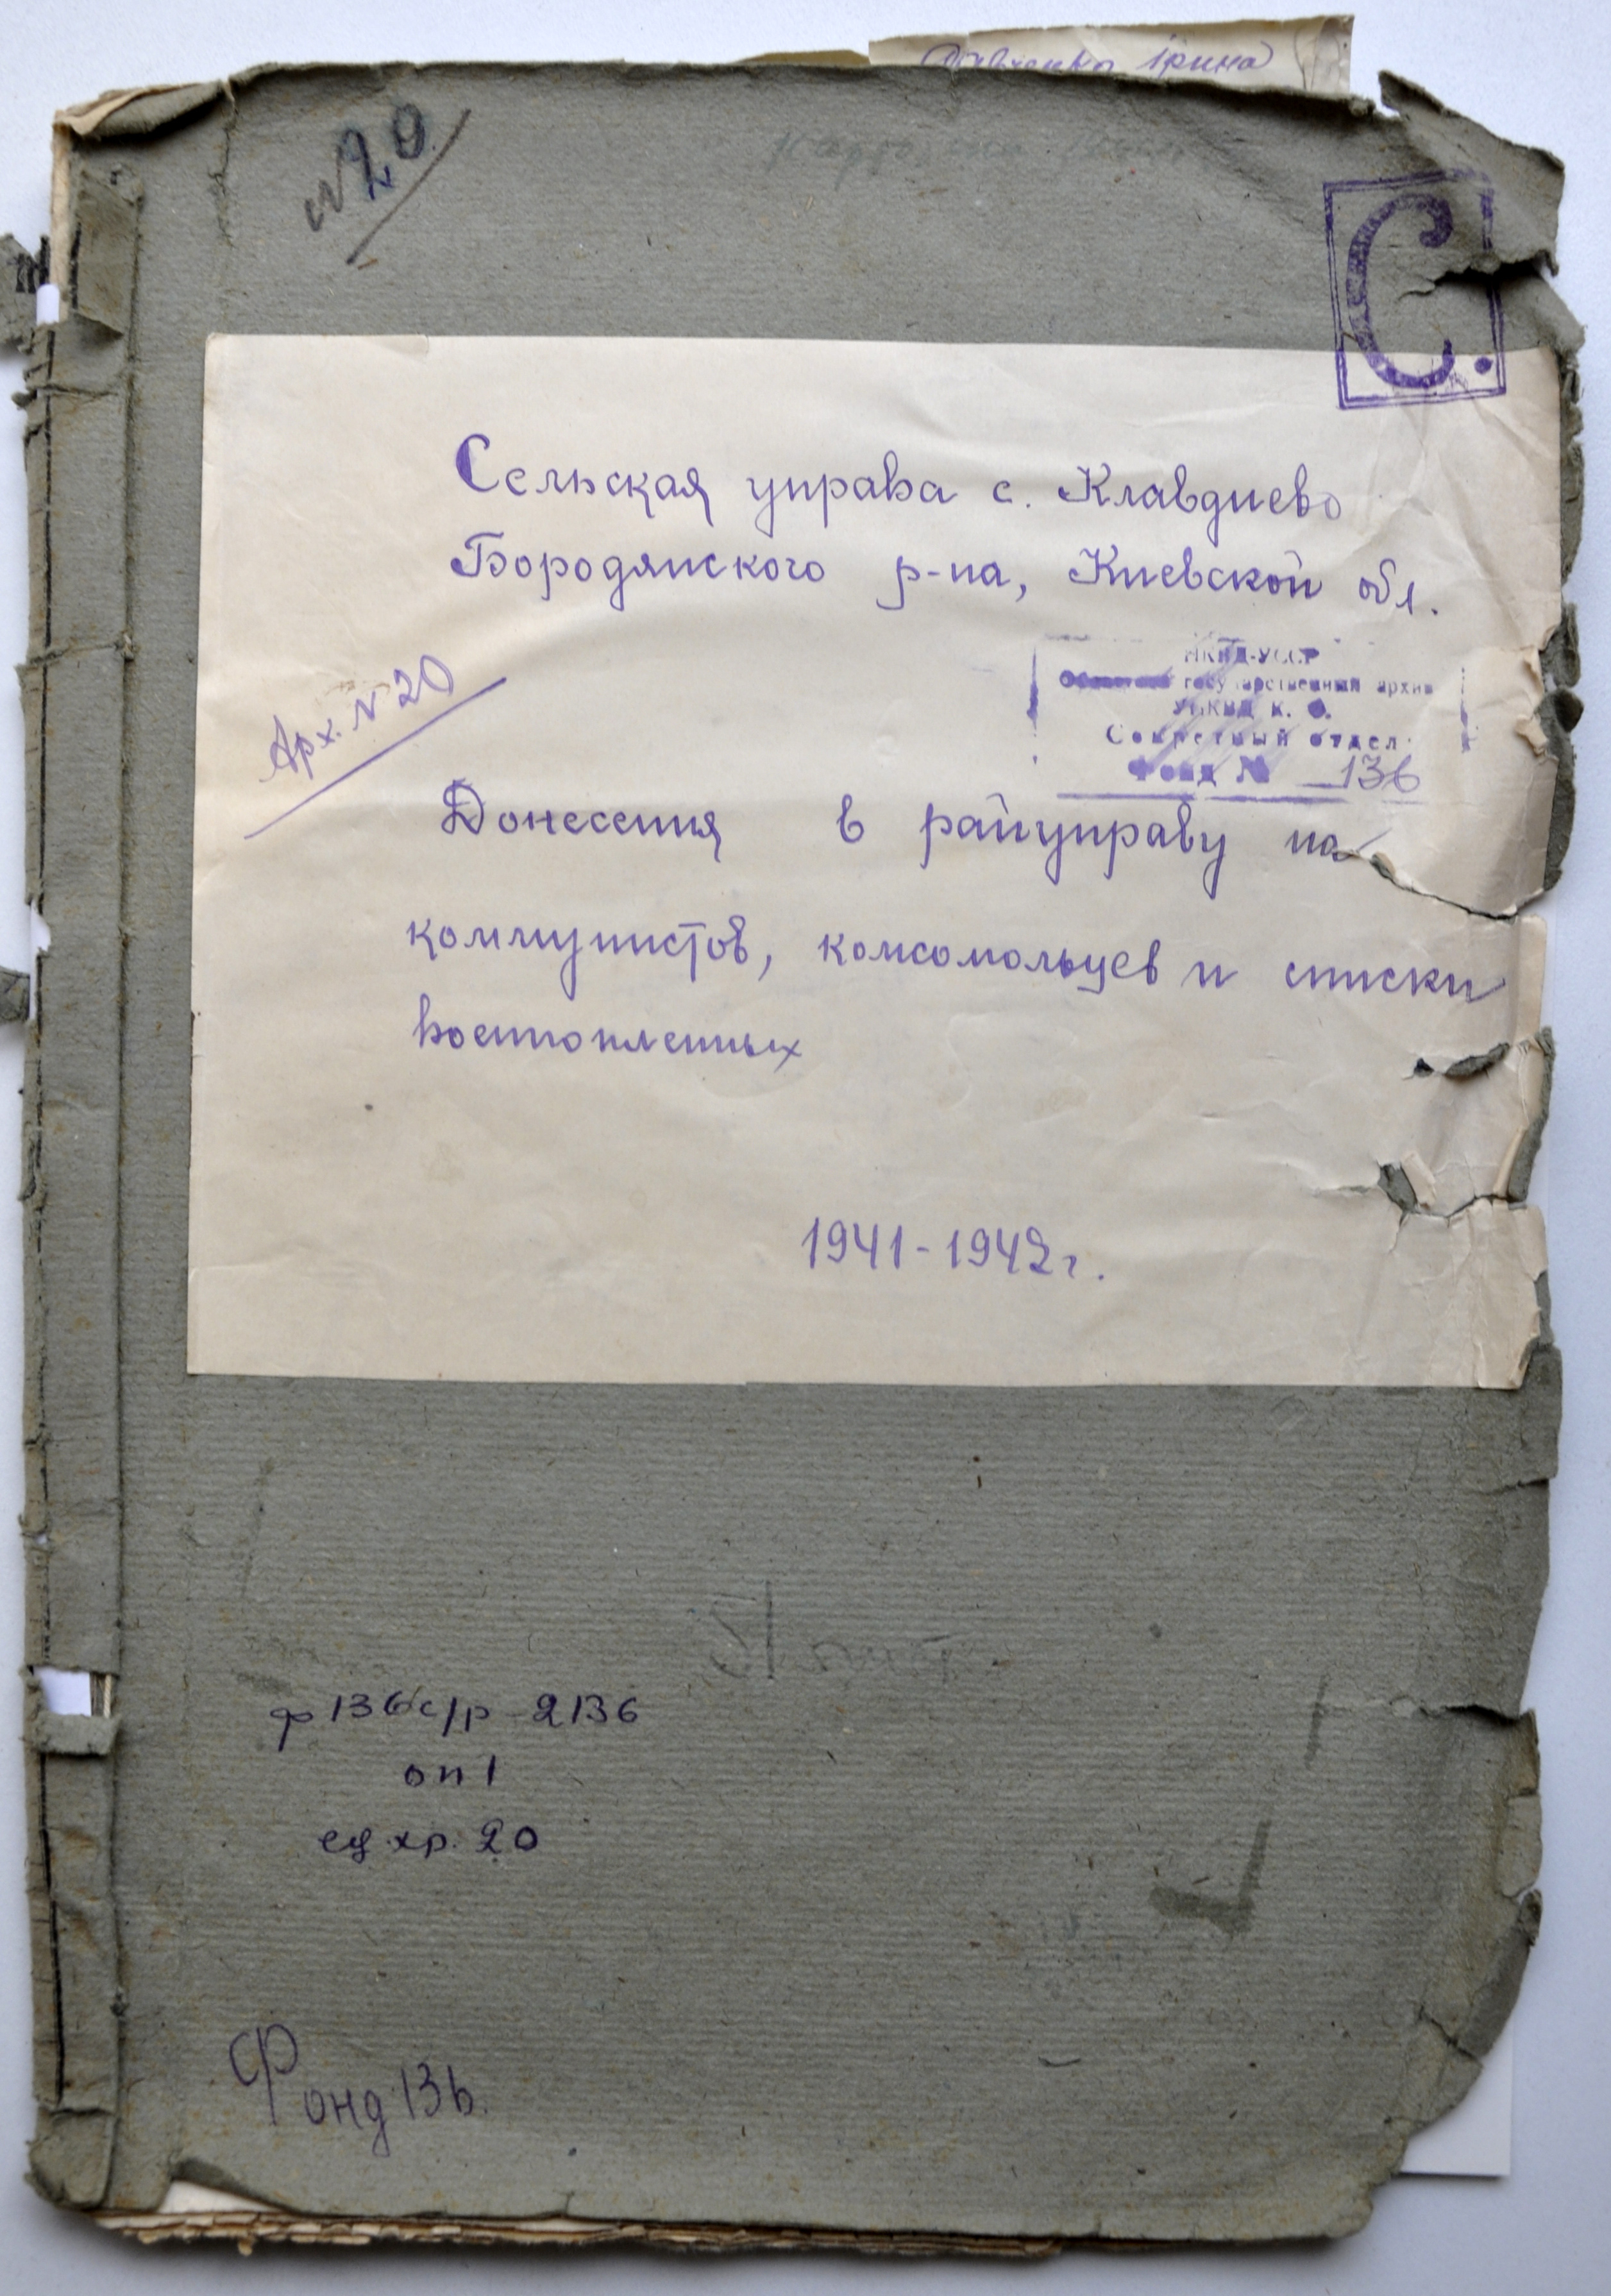 ірина
№20
С.
Сельская управа с. Клавдиево
Бородянского р-на, Киевской обл.
НКВД-УССР
государственный архив
УНКВД К. О.
Секретный отдел
Фонд № 136
Арх. № 20
Донесения в райуправу на
коммунистов, комсомольцев и списки
военнопленных
1941-1942г.
ф 136 с/р-2136
оп 1
ед хр. 20
Фонд 136.